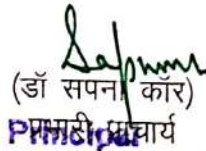 Sapna
(डॉ सपना कॉर)
प्रभारी प्राचार्य
Principal